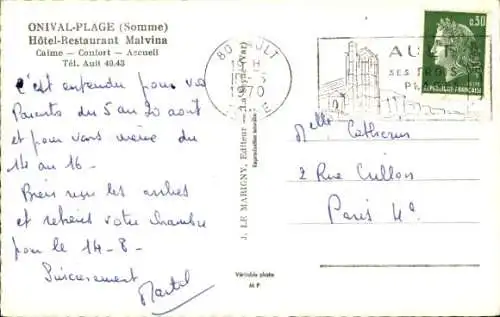 ONIVAL-PLAGE (Somme)
Hôtel-Restaurant Malvina
Calme - Confort - Accueil
Tél. Ault 40.43
c'est entendu pour vos
Parents du 5 au 20 août
et pour vous même du
14 au 16 -
Bien reçu les arrhes
et retiens votre chambre
pour le 14 - 8 -
Sincèrement
80 AULT
1970
SOMME
AULT
SES TROIS
0,30
REPUBLIQUE FRANÇAISE
J. LE MARIGNY, Editeur - La Seyne (Var)
Reproduction interdite
Véritable photo
M P
Melle Catherine
2 Rue Crillon
Paris 4e